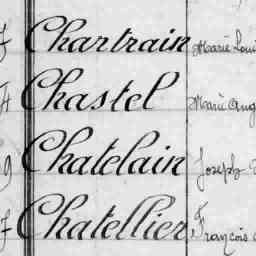 7 Chartrain Marie Loui
4 Chastel Marie Ang
9 Chatelain Joseph
7 Chatellier François